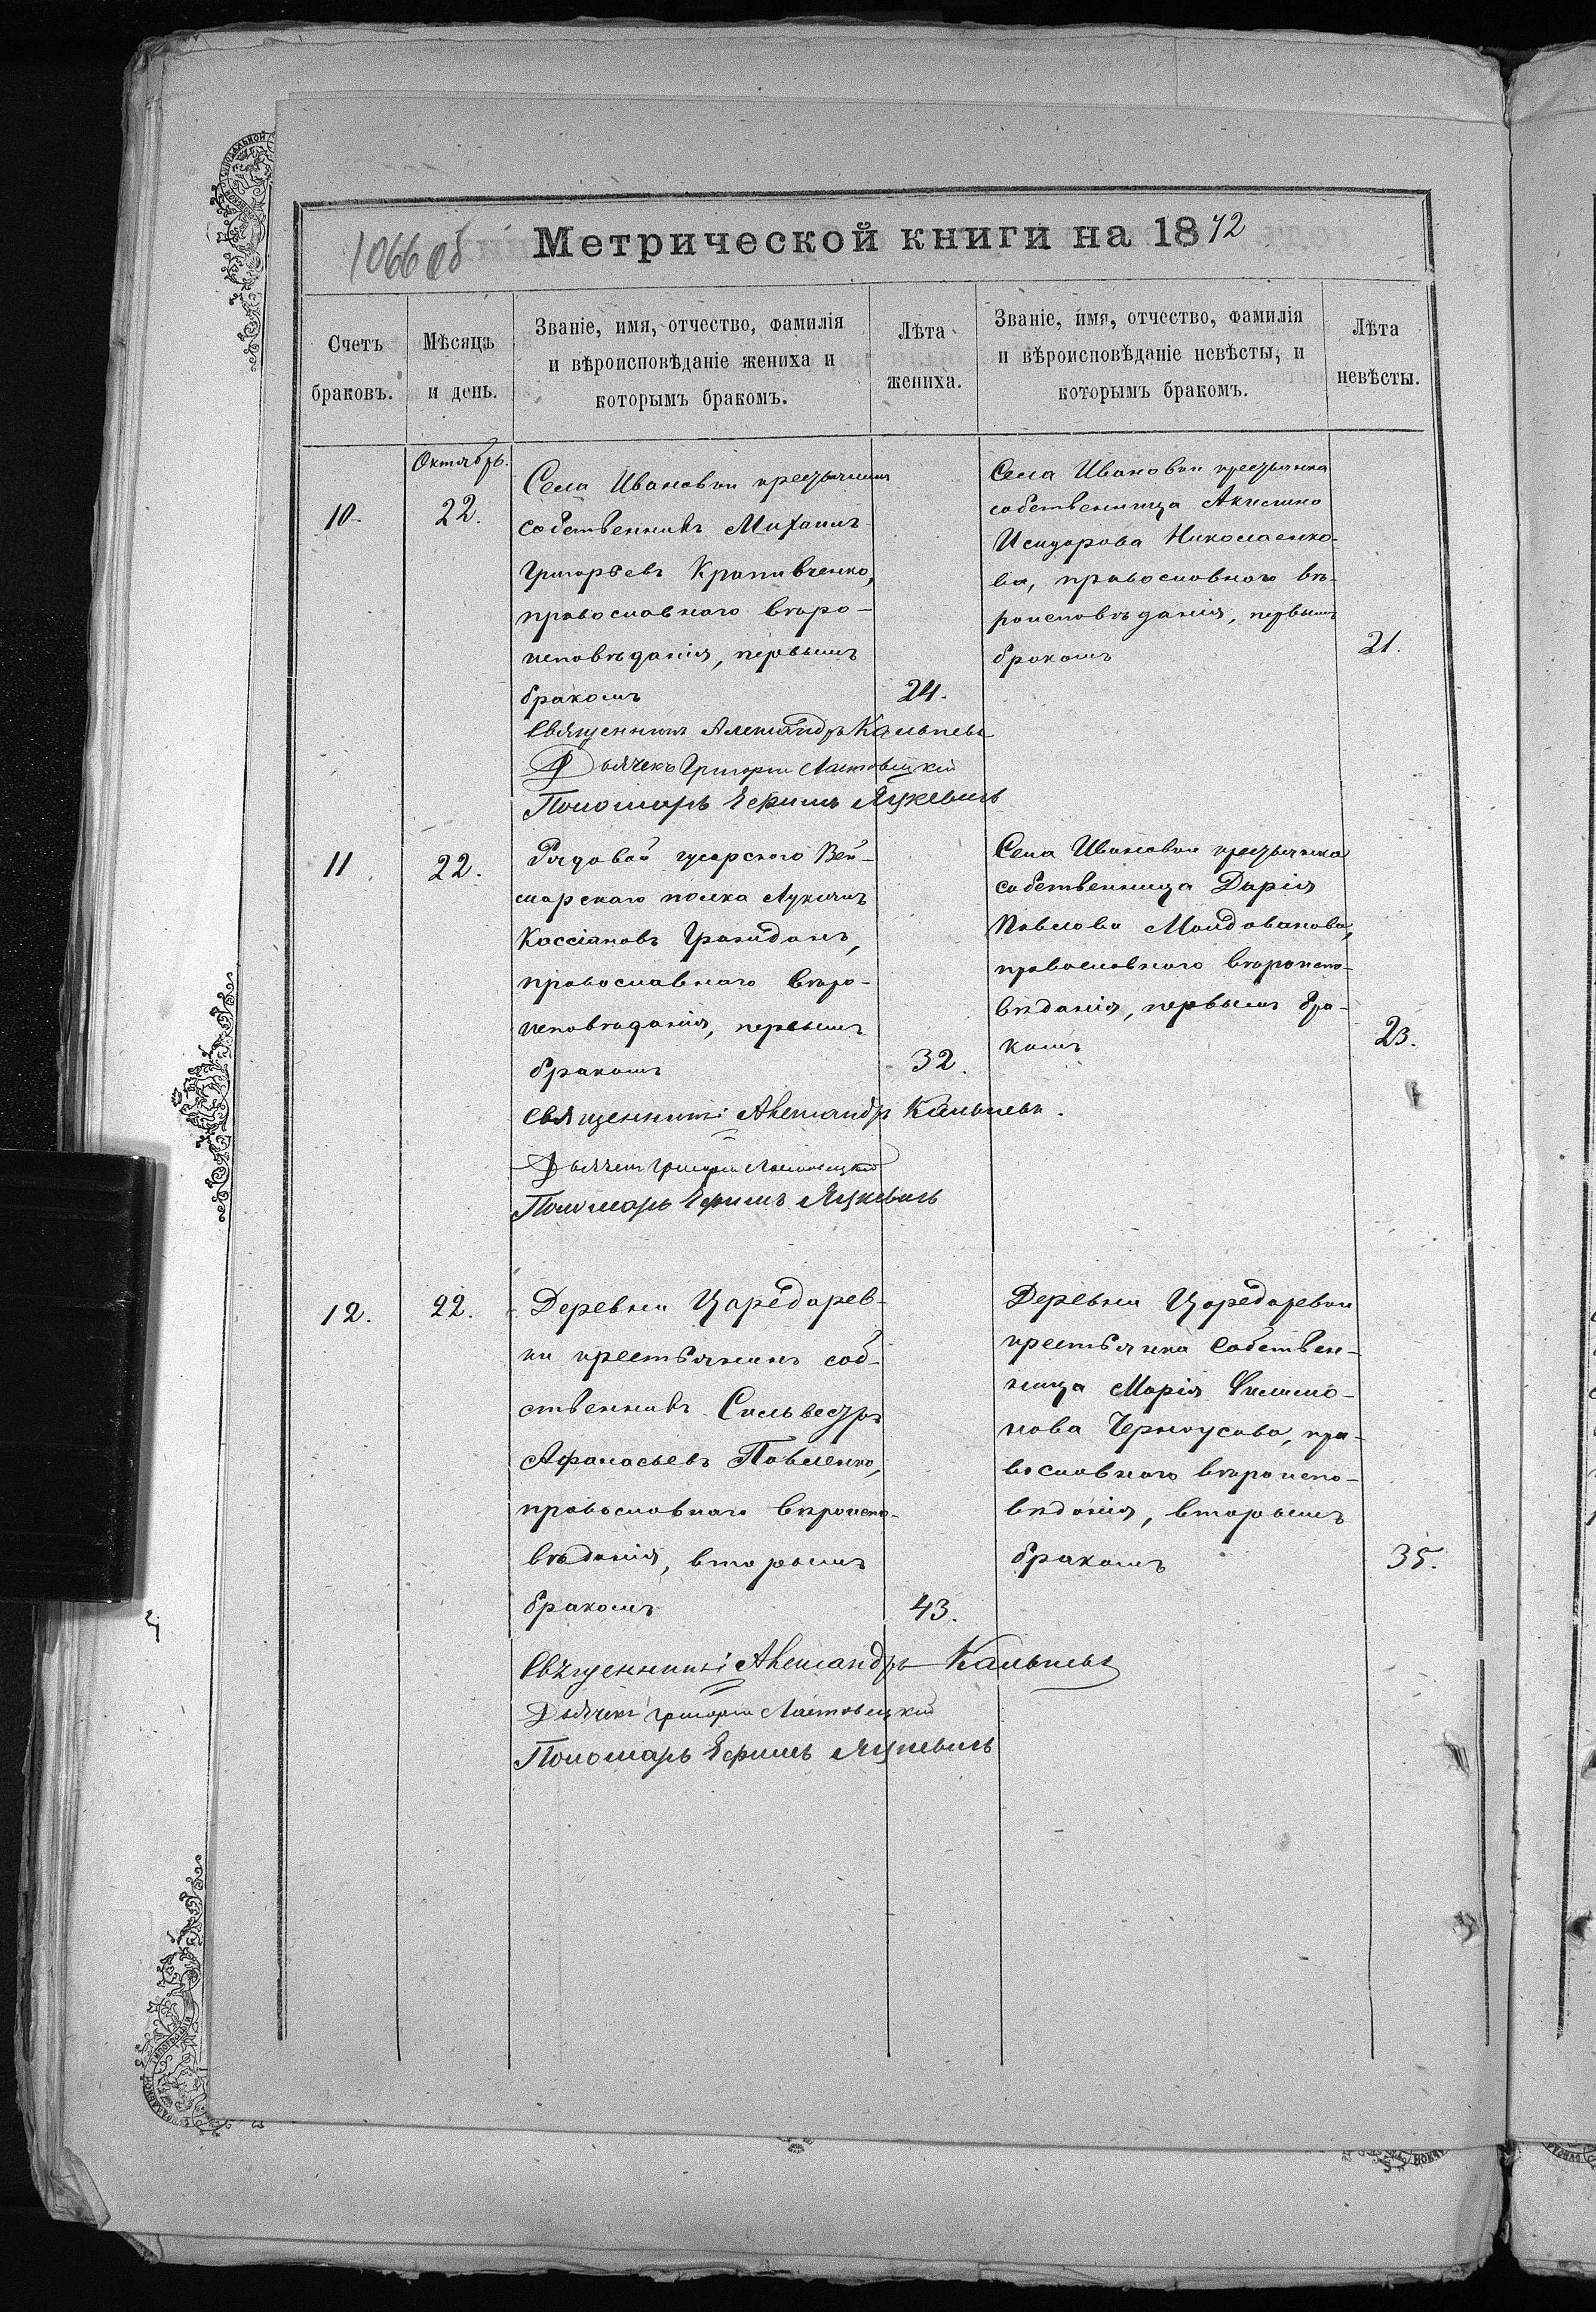 1066 об
Метрической книги на 1872
Счетъ браковъ.
Мѣсяцъ и день.
Званіе, имя, отчество, фамилія
и вѣроисповѣданіе жениха и
которымъ бракомъ.
Лѣта жениха.
Званіе, имя, отчество, фамилія
и вѣроисповѣданіе невѣсты, и
которымъ бракомъ.
Лѣта невѣсты.
Октябрь.
10.
22.
Села Ивановки крестьянинъ
собственникъ Михаилъ
Григорьевъ Крапивченко,
православнаго вѣро-
исповѣданія, первымъ
бракомъ
24.
Села Ивановки крестьянка
собственница Акилина
Исидорова Николаенко-
ва, православнаго вѣ-
роисповѣданія, первымъ
бракомъ
21.
Священникъ Александръ
Дьячекъ Григорій Ластовецкій
Пономарь Ефимъ Яцкевичъ
11
22.
Рядовой гусарского Вей-
марскаго полка Лукіянъ
Кассіановъ
православнаго вѣро-
исповѣданія, первымъ
бракомъ
32.
Села Ивановки крестьянка
собственница Дарія
Павлова Молдованова,
православнаго вѣроиспо-
вѣданія, первымъ бра-
комъ
23.
Священникъ Александръ
Дьячекъ Григорій Ластовецкій
Пономарь Ефимъ Яцкевичъ
12.
22.
Деревни Царедарев-
ки крестьянинъ соб-
ственникъ Сильвестръ
Афанасьевъ Павленко,
православнаго вѣроиспо-
вѣданія, вторымъ
бракомъ
43.
Деревни Царедаревки
крестьянка собствен-
ница Марія Филимо-
нова Черноусова, пра-
вославнаго вѣроиспо-
вѣданія, вторымъ
бракомъ
35.
Священникъ Александръ
Дьячекъ Григорій Ластовецкій
Пономарь Ефимъ Яцкевичъ